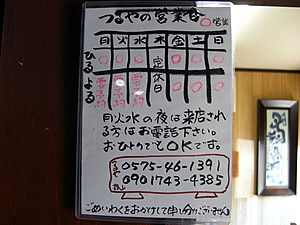 つるやの営業日 ○営業
月 火 水 木 金 土 日
ひる ○ ○ ○ 定休日 ○ ○ ○
よる 要予約 要予約 要予約 ○ ○ ○
月火水の夜は来店され
る方はお電話下さい。
おひとりでもOKです。
つるや 0575-46-1391
0901743-4385
ごめいわくをおかけして申し分けございません